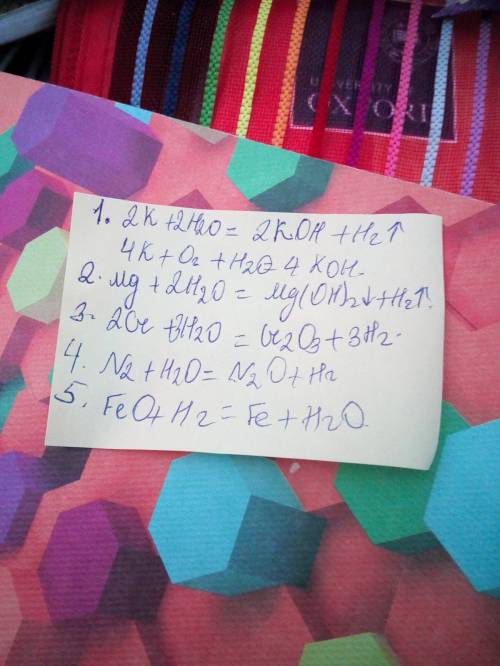 UNIVERSITY OF
OXFORD
1. 2K + 2H2O = 2KOH + H2↑
4K + O2 + H2O = 4 KOH.
2. Mg + 2H2O = Mg(OH)2↓ + H2↑.
3. 2Cr + 3H2O = Cr2O3 + 3H2.
4. N2 + H2O = N2O + H2
5. FeO + H2 = Fe + H2O.